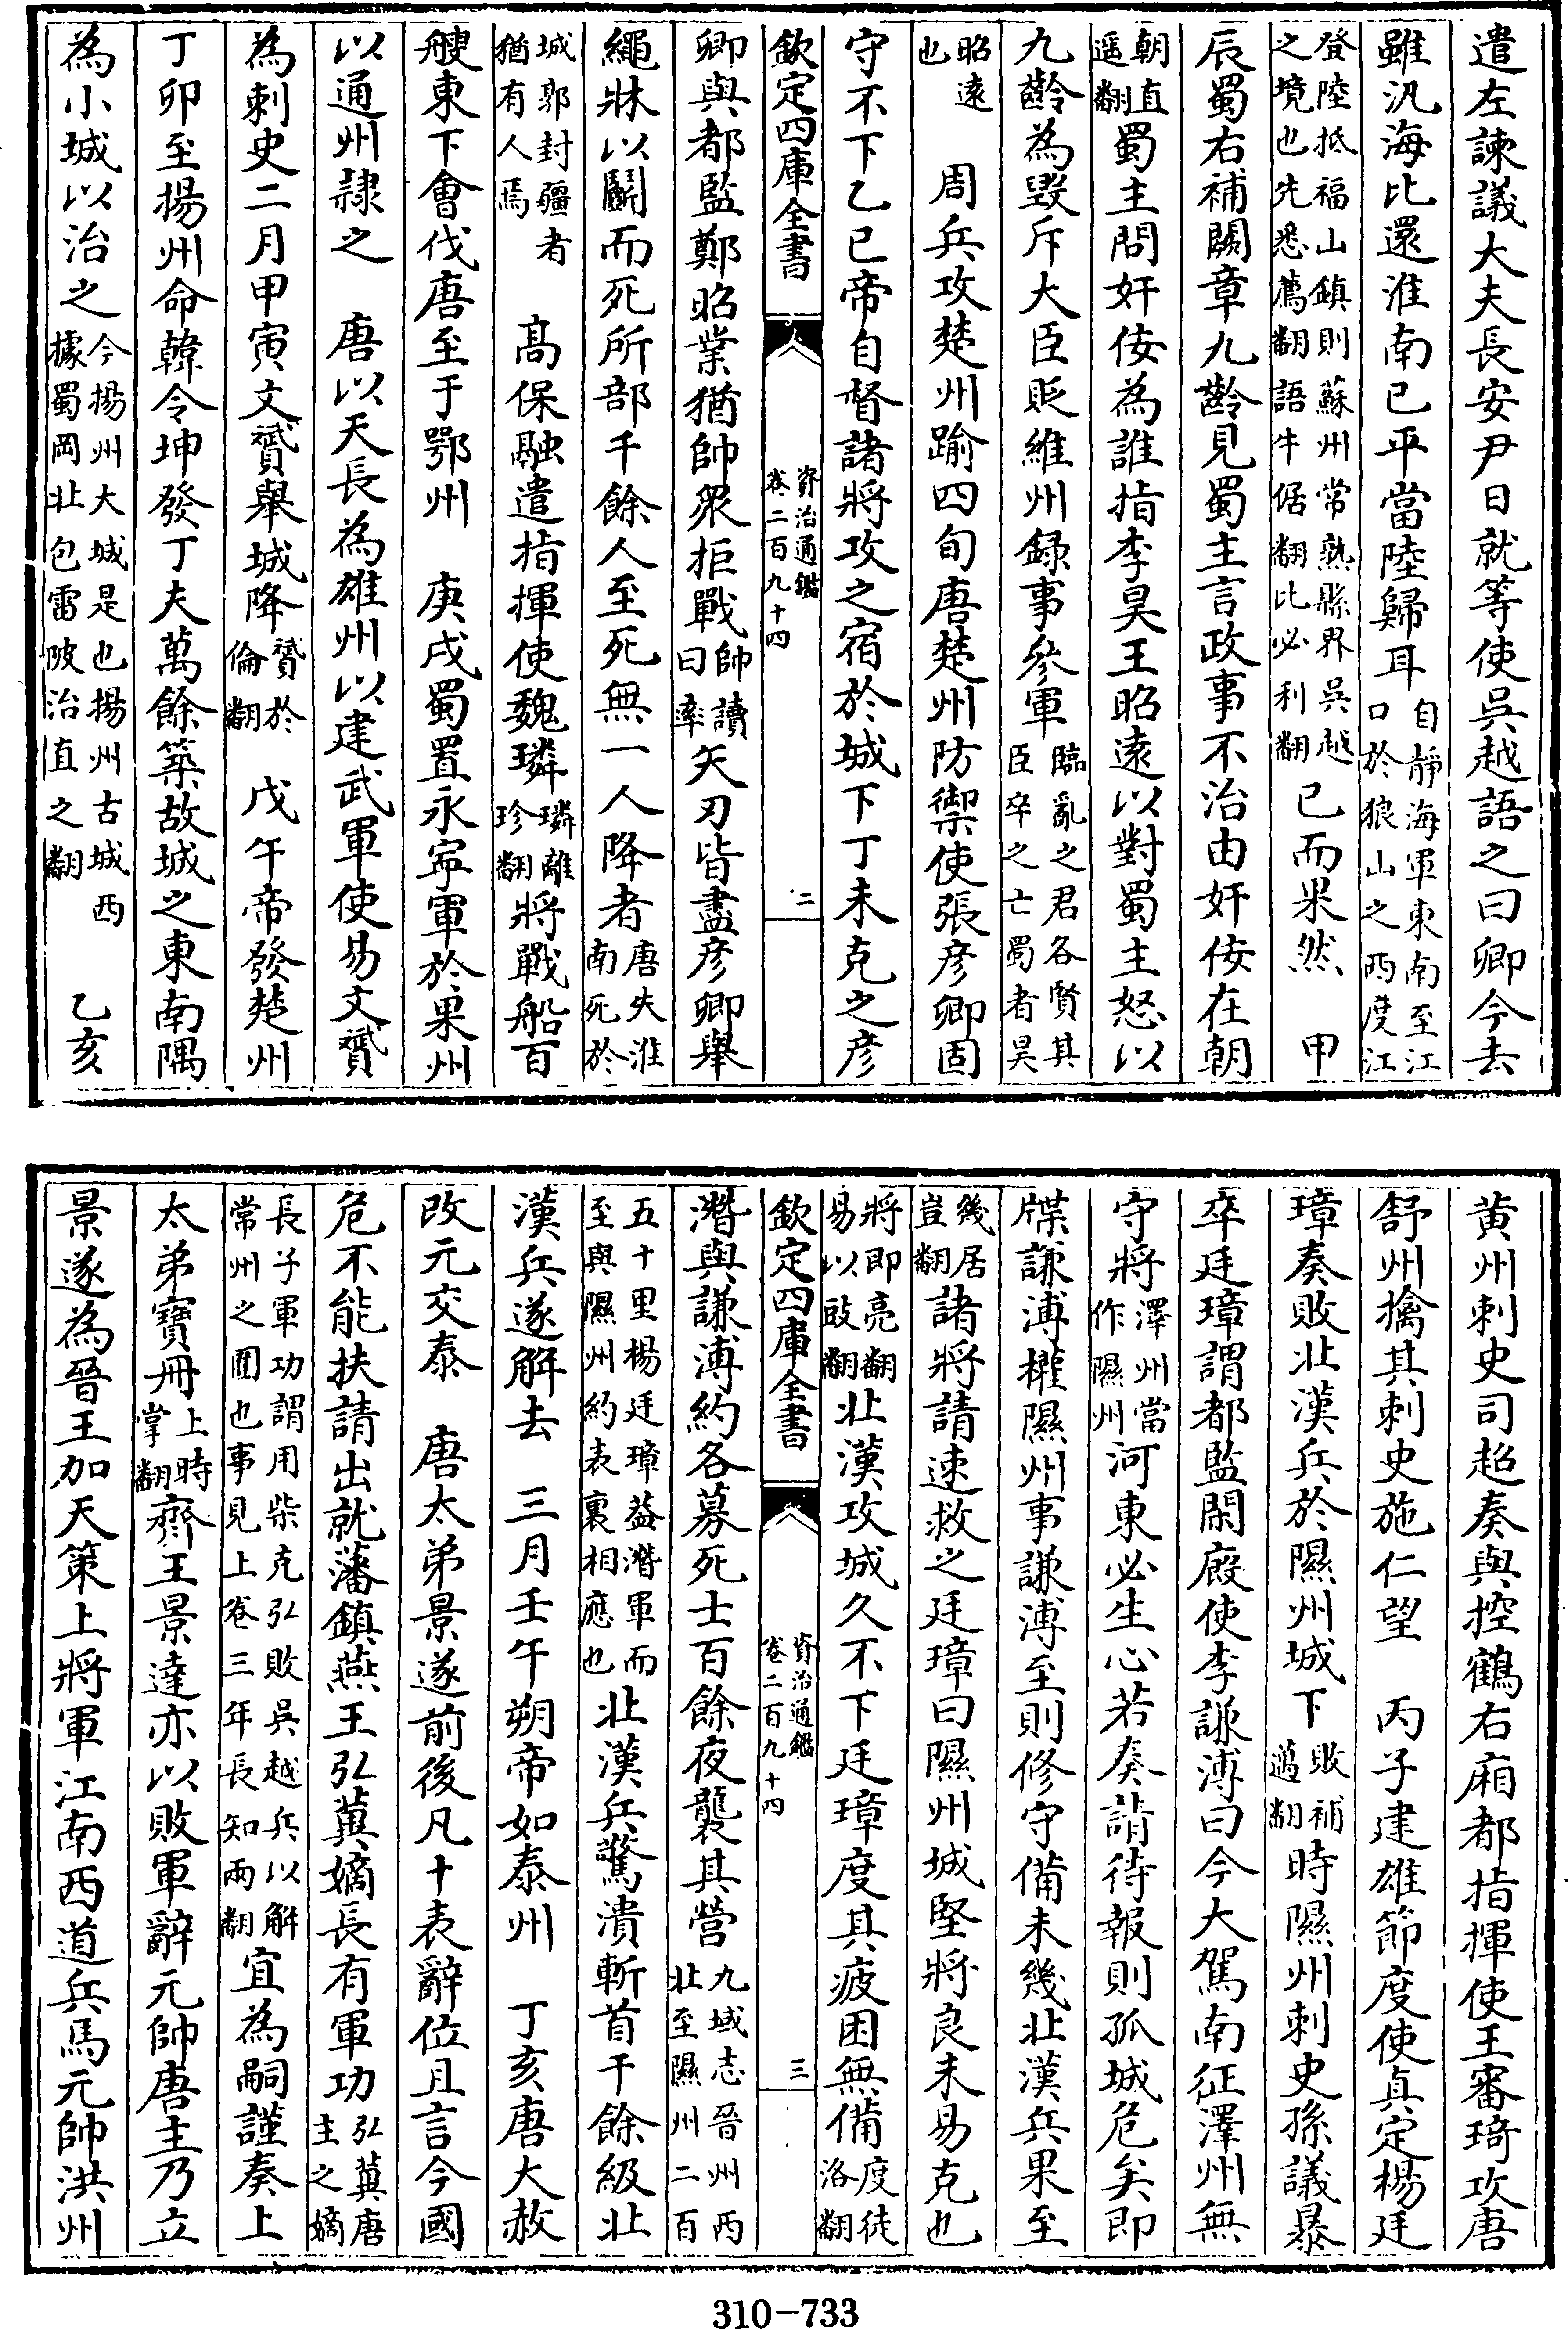 遣左諫議大夫長安尹日就等使吳越語之曰卿今去
雖汎海比還淮南已平當陸歸耳自靜海軍東南至江口於狼山之西度江
登陸抵福山鎮則蘇州常熟縣界吳越之境也先悉薦翻語牛倨翻比必利翻已而果然　甲
辰蜀右補闕章九齡見蜀主言政事不治由奸佞在朝
朝直遥翻蜀主問奸佞為誰指李昊王昭遠以對蜀主怒以
九齡為毀斥大臣貶維州録事參軍臨亂之君各賢其臣卒之亡蜀者昊
昭遠也　周兵攻楚州踰四旬唐楚州防禦使張彦卿固
守不下乙巳帝自督諸將攻之宿於城下丁未克之彦
欽定四庫全書　資治通鑑卷二百九十四　二
卿與都監鄭昭業猶帥衆拒戰帥讀曰率矢刃皆盡彦卿舉
繩牀以鬭而死所部千餘人至死無一人降者唐失淮南死於
城郭封疆者猶有人焉　高保融遣指揮使魏璘璘離珍翻將戰船百
艘東下會伐唐至于鄂州　庚戌蜀置永寧軍於果州
以通州隸之　唐以天長為雄州以建武軍使易文贇
為刺史二月甲寅文贇舉城降贇於倫翻　戊午帝發楚州
丁卯至揚州命韓令坤發丁夫萬餘築故城之東南隅
為小城以治之今揚州大城是也揚州古城西據蜀岡北包雷陂治直之翻　乙亥
黄州刺史司超奏與控鶴右廂都指揮使王審琦攻唐
舒州擒其刺史施仁望　丙子建雄節度使真定楊廷
璋奏敗北漢兵於隰州城下敗補邁翻時隰州刺史孫議暴
卒廷璋謂都監閑廐使李謙溥曰今大駕南征澤州無
守將澤州當作隰州河東必生心若奏請待報則孤城危矣即
牒謙溥權隰州事謙溥至則修守備未幾北漢兵果至
幾居豈翻諸將請速救之廷璋曰隰州城堅將良未易克也
將即亮翻易以豉翻北漢攻城久不下廷璋度其疲困無備度徒洛翻
欽定四庫全書　資治通鑑卷二百九十四　三
潛與謙溥約各募死士百餘夜襲其營九域志晉州西北至隰州二百
五十里楊廷璋葢潛軍而至與隰州約表裏相應也北漢兵驚潰斬首千餘級北
漢兵遂解去　三月壬午朔帝如泰州　丁亥唐大赦
改元交泰　唐太弟景遂前後凡十表辭位且言今國
危不能扶請出就藩鎮燕王弘冀嫡長有軍功弘冀唐主之嫡
長子軍功謂用柴克弘敗吳越兵以解常州之圍也事見上卷三年長知兩翻宜為嗣謹奏上
太弟寶冊上時掌翻齊王景達亦以敗軍辭元帥唐主乃立
景遂為晉王加天策上將軍江南西道兵馬元帥洪州
310-733